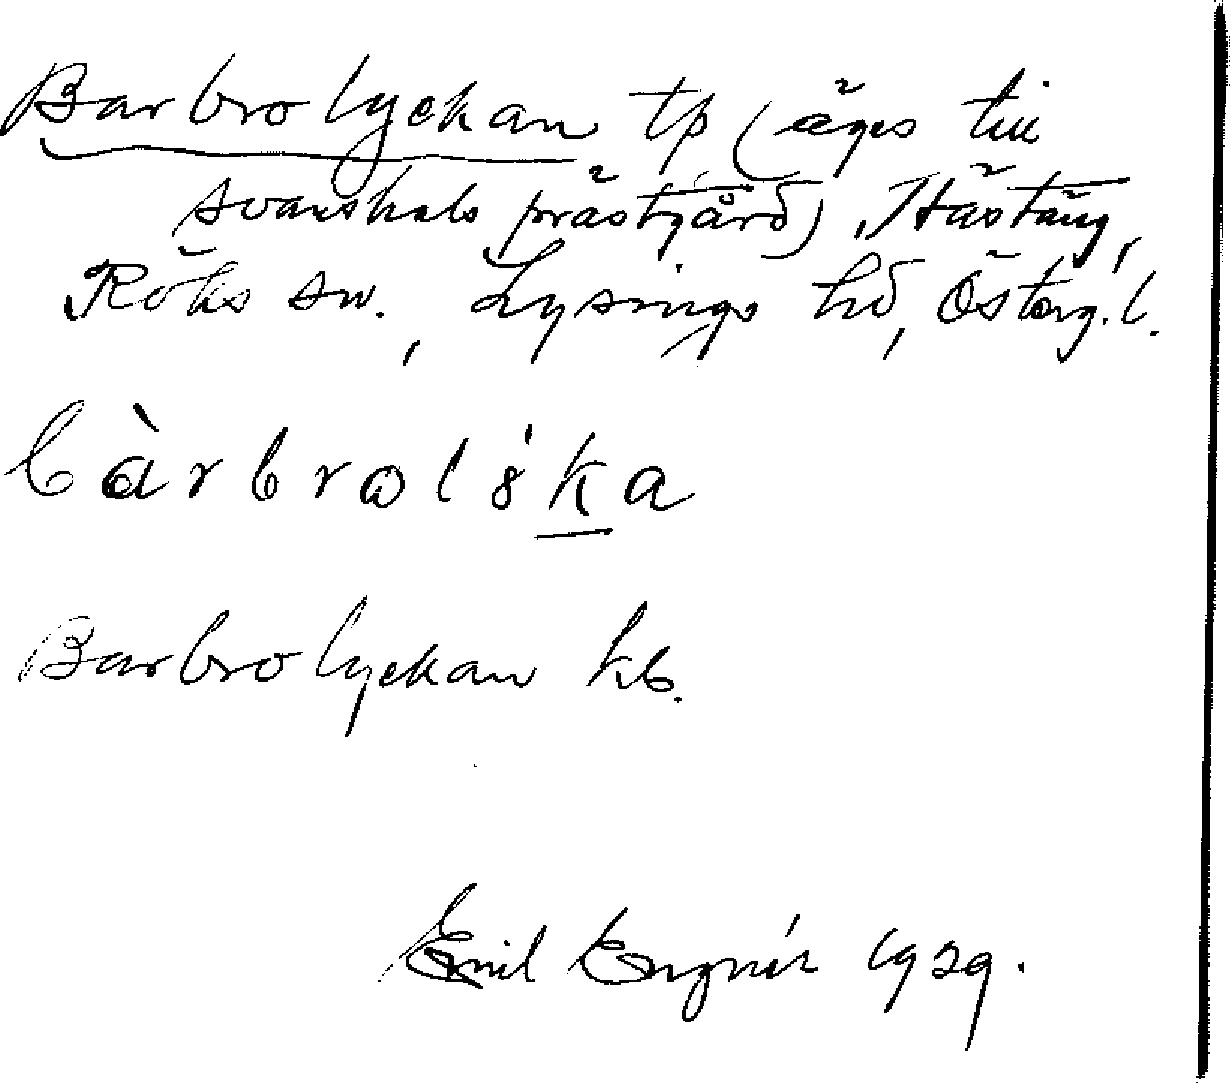 Barbrolyckan tp (äges till
Svanshals prästgård), Hästäng,
Röks sn., Lysings hd, Österg. l.
bàrbrolỳka
Barbrolyckan kb.
Emil Engnér 1929.